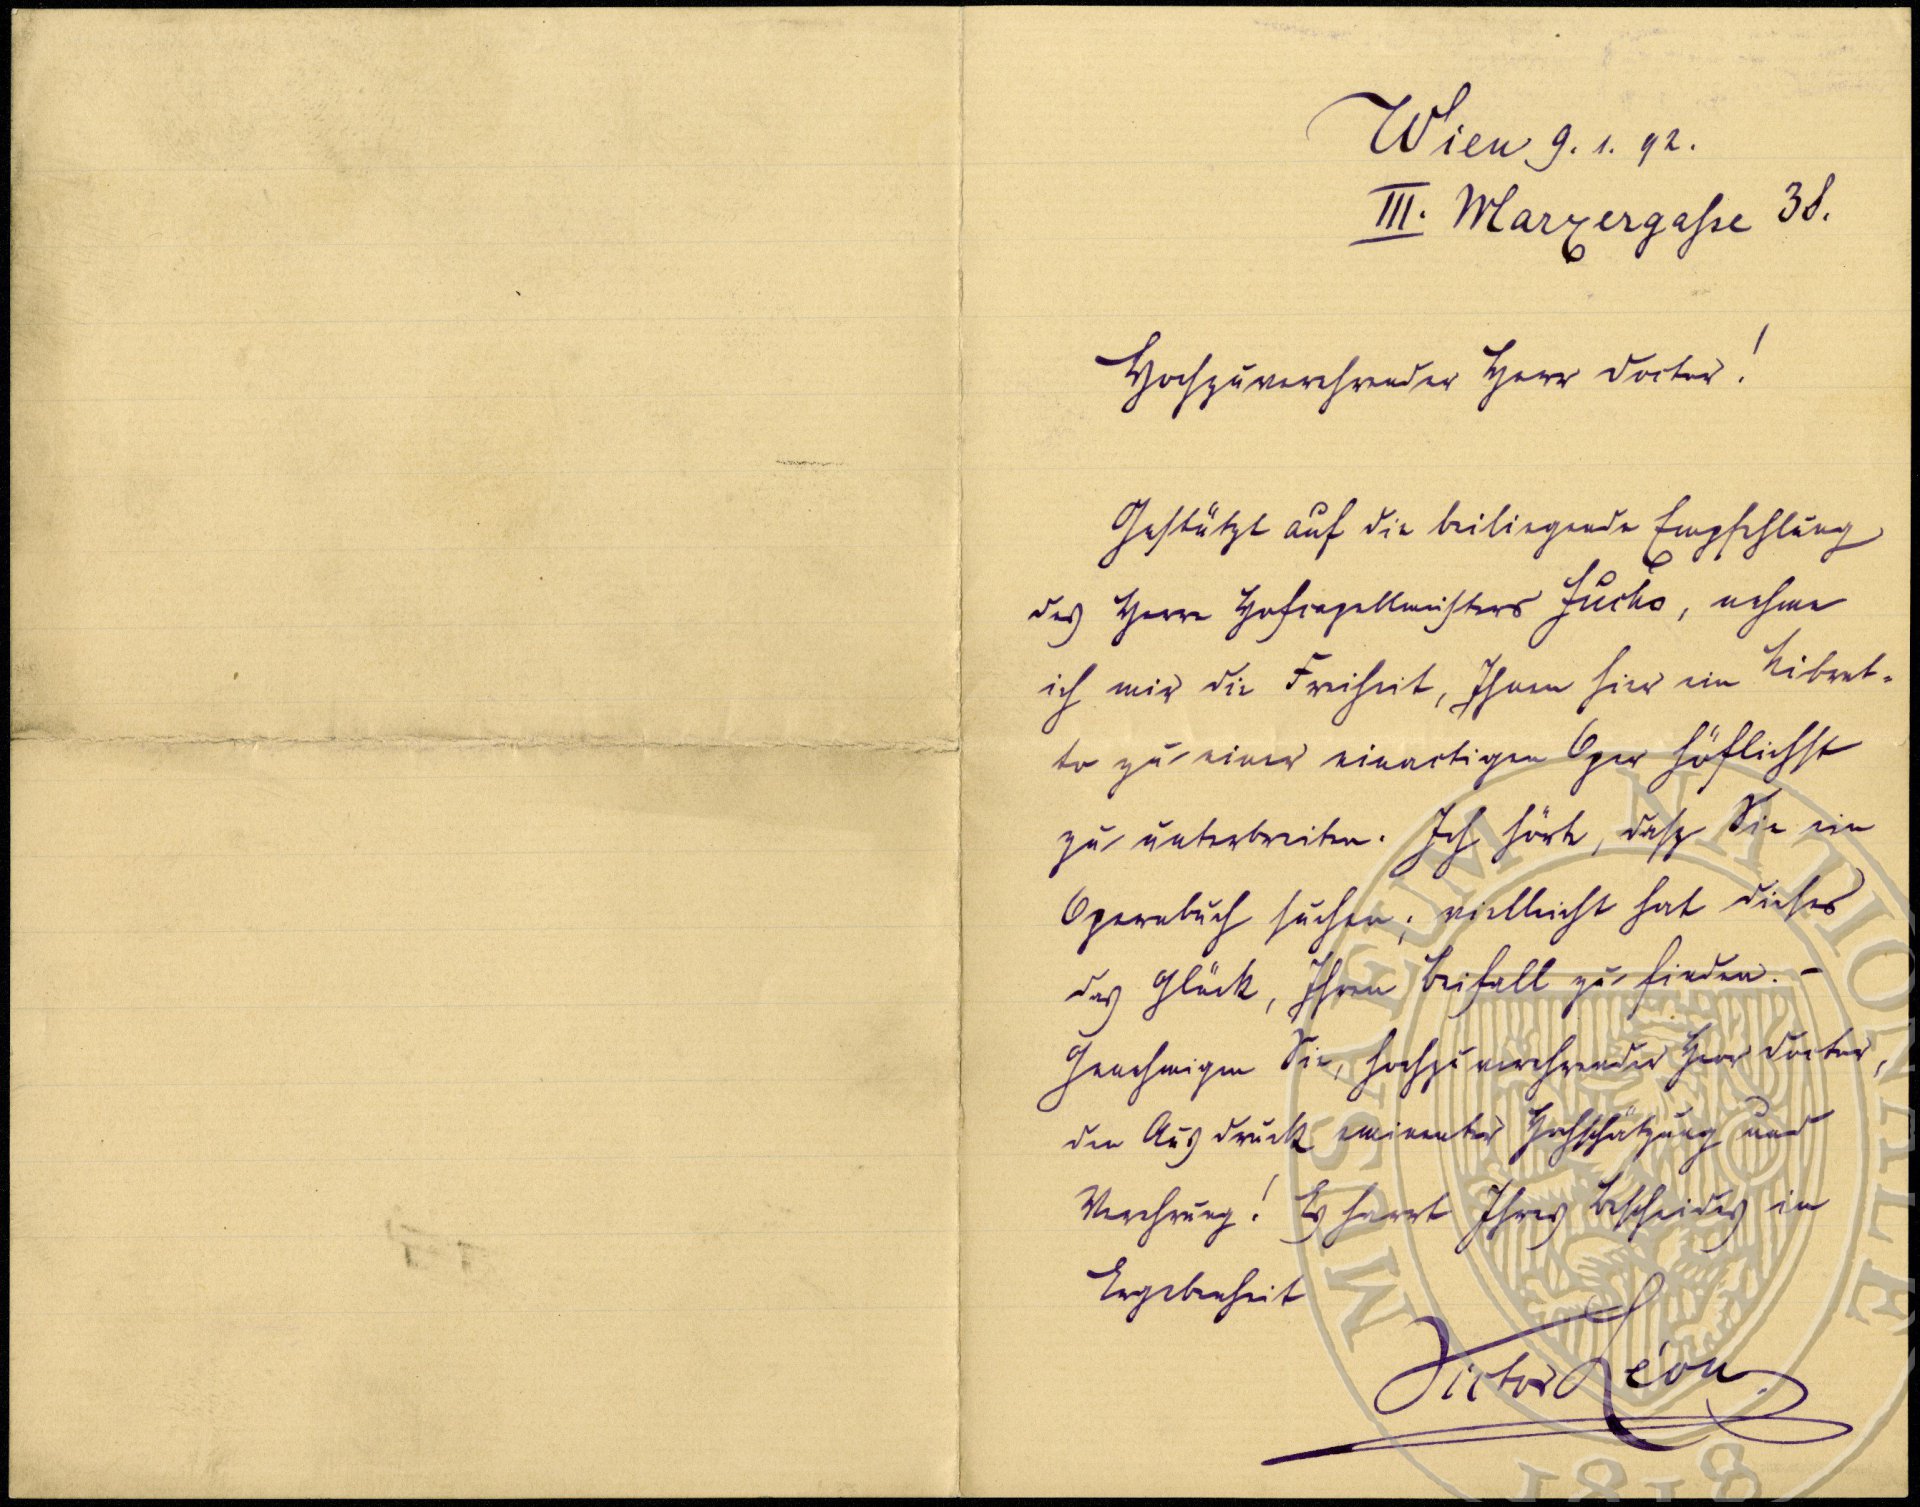 Wien 9. 1. 92.
III. Marxergasse 38.
Hochzuverehrender Herr Doctor!
Gestützt auf die beiliegende Empfehlung
des Herrn Hofcapellmeisters Fuchs, nehme
ich mir die Freiheit, Ihnen hier ein Libret-
to zu einer einactigen Oper höflichst
zu unterbreiten. Ich hörte, dass Sie ein
Opernbuch suchen; vielleicht hat dieses
das Glück, Ihren Beifall zu finden. –
Genehmigen Sie, hochzuverehrender Herr Doctor,
den Ausdruck eminenter Hochschätzung und
Verehrung! Es harrt Ihres Bescheides in
Ergebenheit
Victor Léon.
MUSAEUM NATIONALE
1818